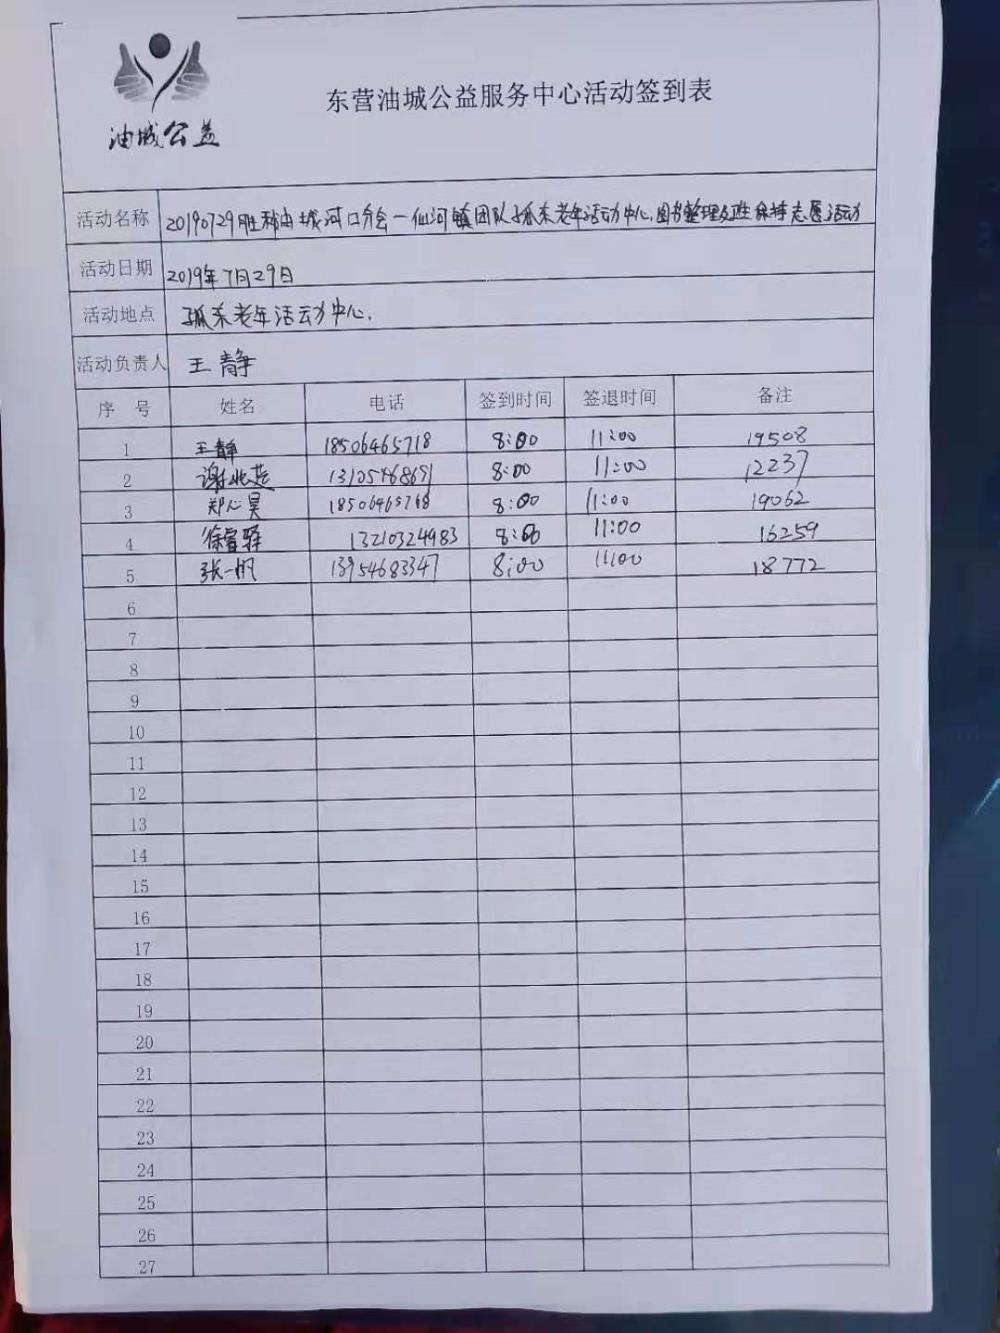 油城公益
东营油城公益服务中心活动签到表
活动名称 20190729胜利油城河口分会一仙河镇团队孤东老年活动中心,图书整理及卫生保持志愿活动
活动日期 2019年7月29日
活动地点 孤东老年活动中心.
活动负责人 王静
序 号 姓名 电话 签到时间 签退时间 备注
1 王静 18506465718 8:00 11:00 19508
2 8:00 11:00 12237
3 郑心昊 8:00 11:00 19062
4 徐睿择 13210324983 8:00 11:00 16259
5 张一帆 13954683347 8:00 11:00 18772
6
7
8
9
10
11
12
13
14
15
16
17
18
19
20
21
22
23
24
25
26
27